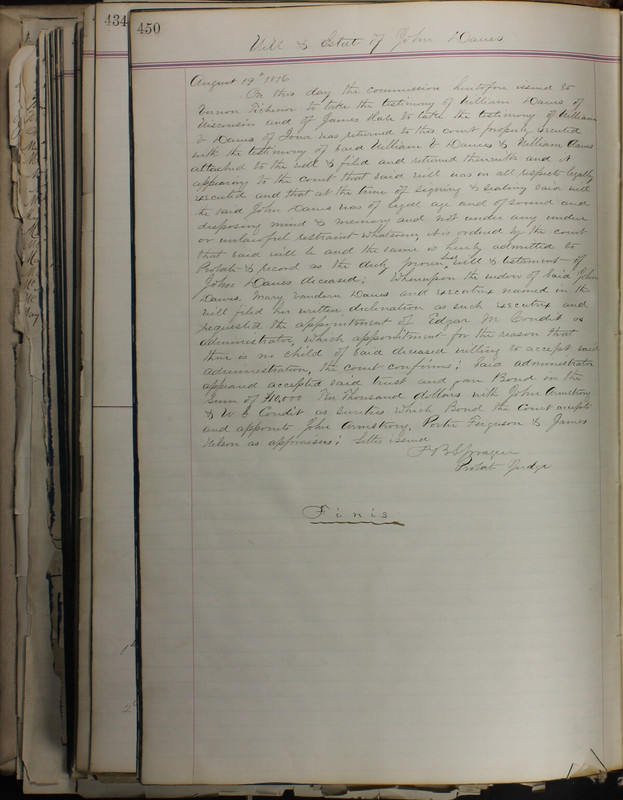 434
450
Will & Estat of John Daues
August 19th 1876
On this day the commission heretofore issued to
Vernon Tichenor to take the testimony of William Daues of
Wisconsin and of James Hale to take the testimony of William
V Daues of Iowa was returned to this court properly executed
with the testimony of said William V Daues & William Daues
attached to the will & filed and returned therewith and it
appearing to the court that said will was in all respects legally
executed and that at the time of signing & sealing said will
he said John Daues was of legal age and of sound and
disposing mind & memory and not under any undue
or unlawful restraint whatsoever, it is ordered by the court
that said will be and the same is hereby admitted to
Probate & record as the duly proven last will & testament of
John Daues deceased; Whereupon the widow of said John
Daues, Mary Daues and executrix named in the
will filed her written declination as such executrix and
requested the appointment of Edgar M Condit as
administrator, which appointment for the reason that
there is no child of said deceased willing to accept said
administration, the court confirms; Said administrator
appeared accepted said trust and gave Bond in the
Sum of $10,000 Ten Thousand dollars with John Armstrong
& W Condit as sureties which Bond the Court accepts
and appoints John Armstrong, Porter Ferguson & James
Nelson as appraisers; Letters issued
F B Sprague
Probate Judge
Finis